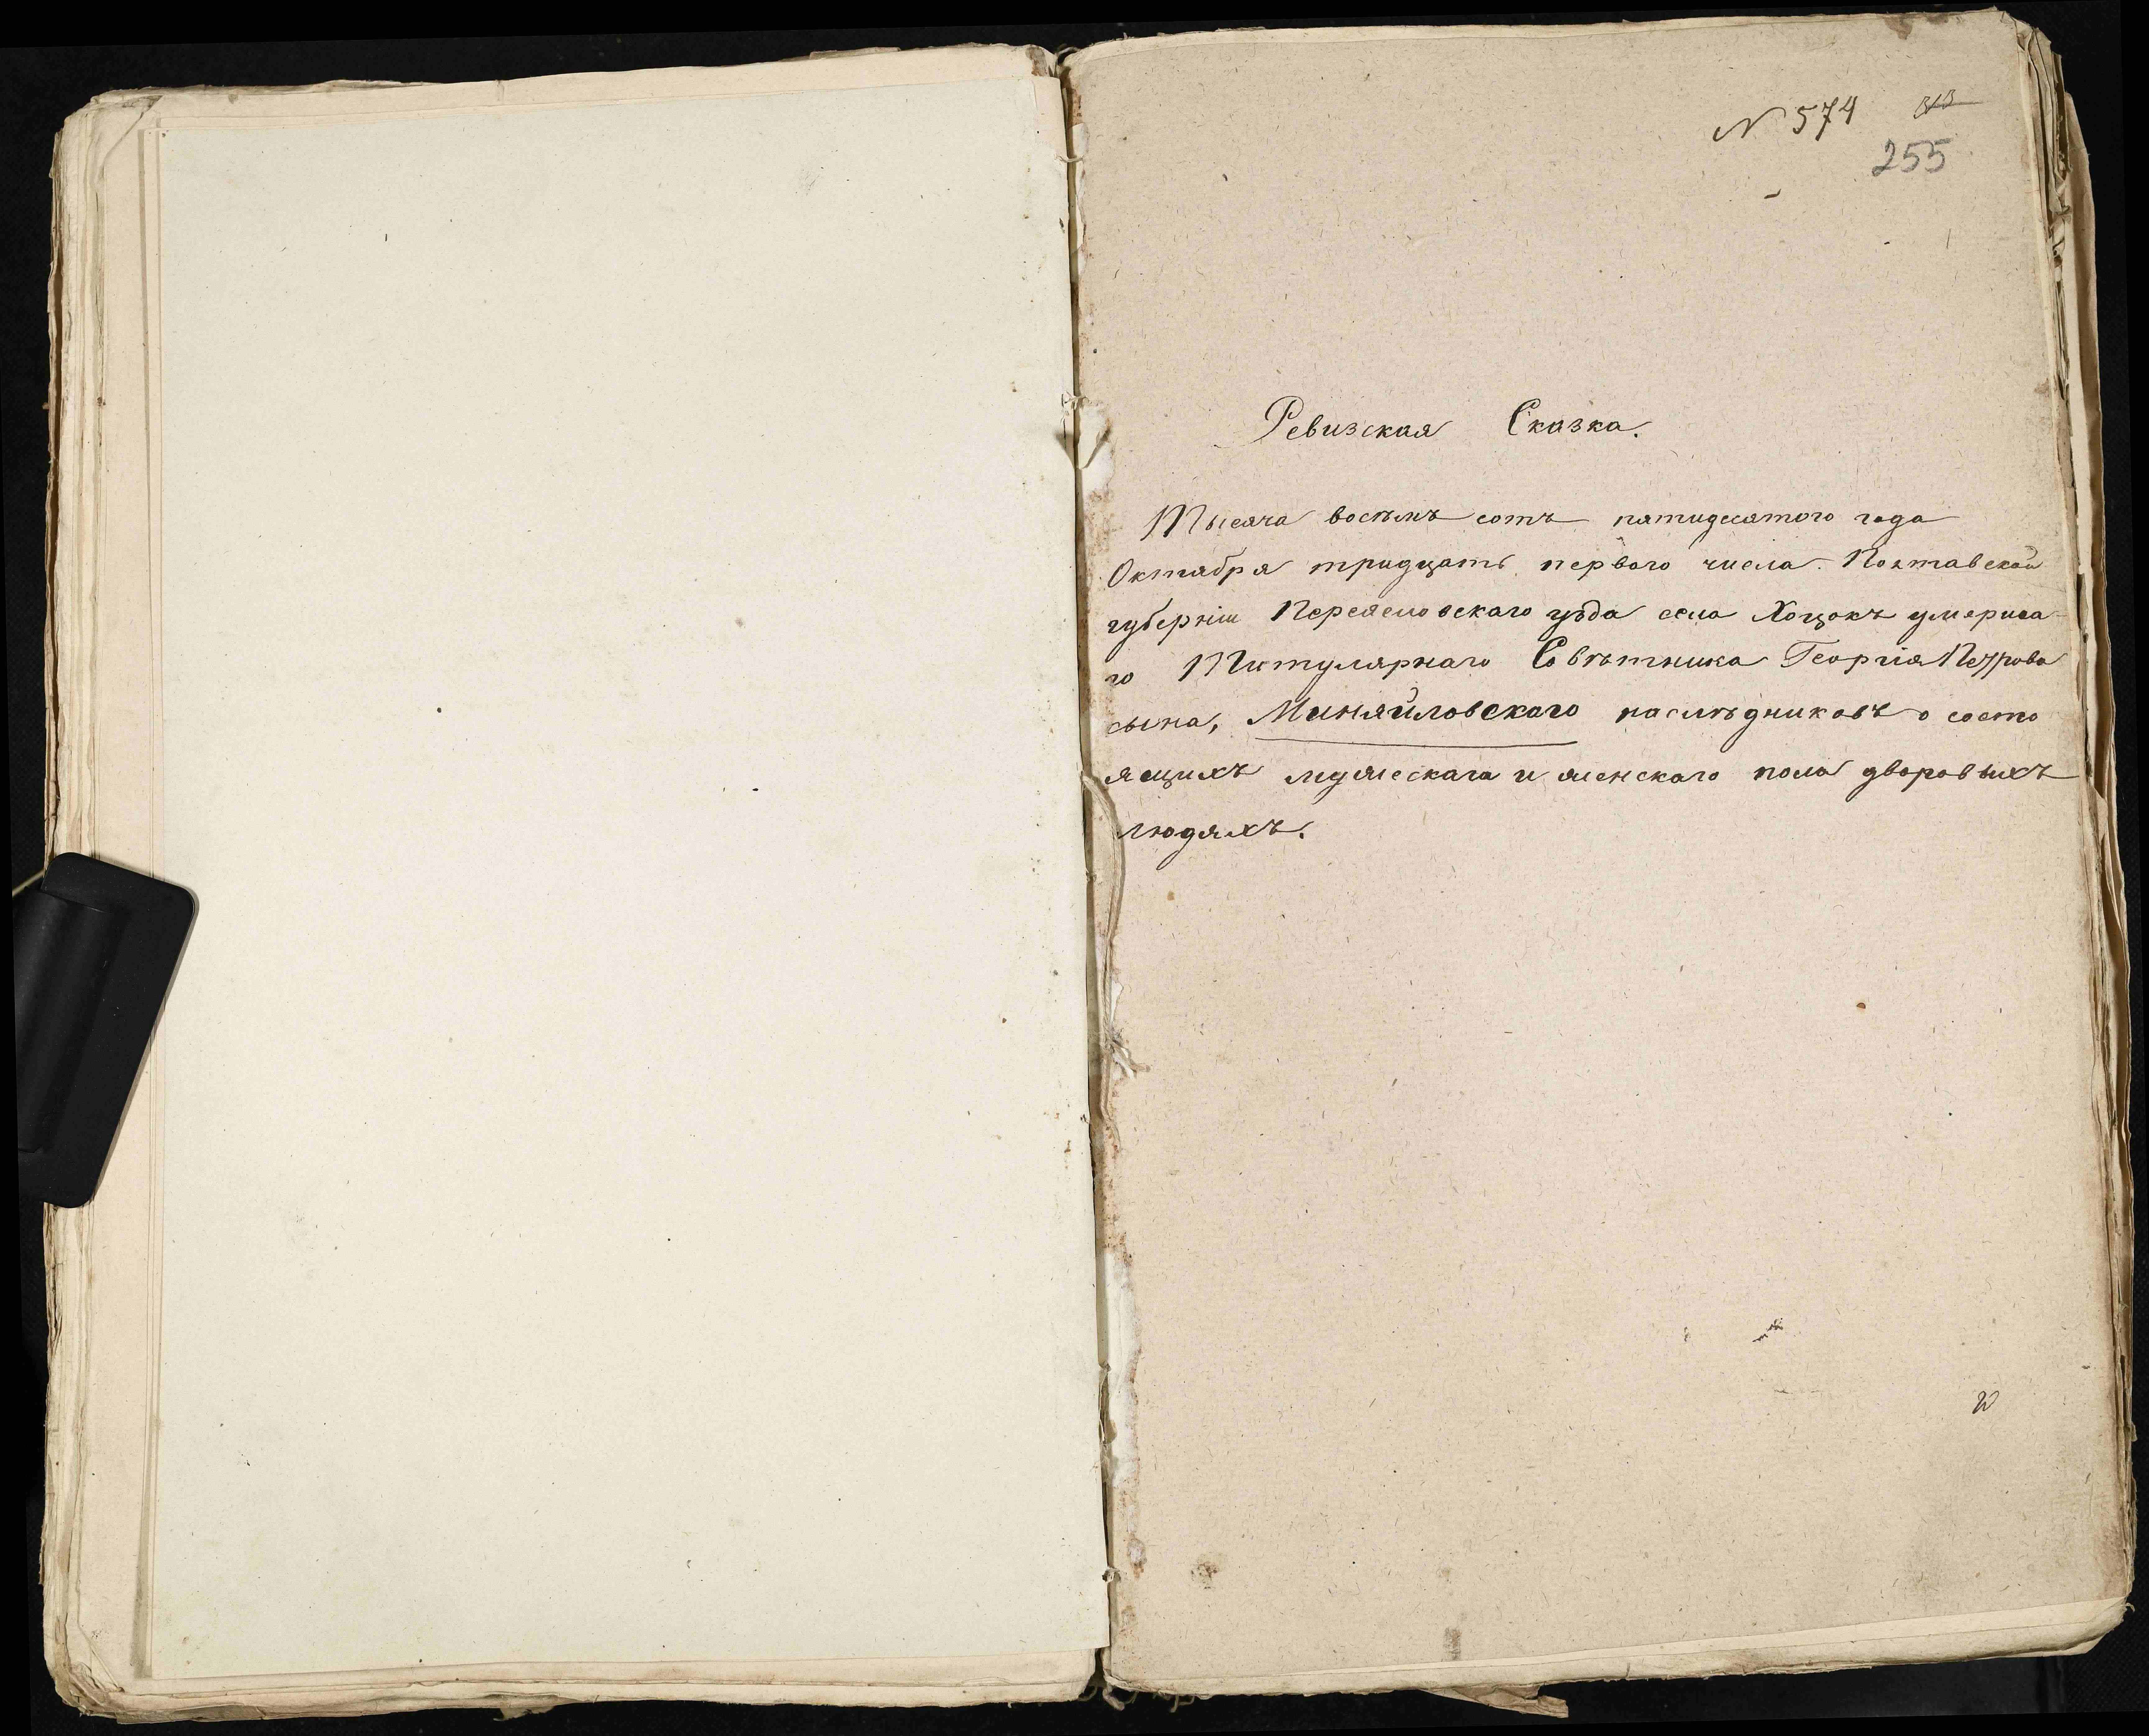 N 574
255
Ревизская Сказка.
Тысяча восемь сотъ пятидесятого года
Октября тридцать первого числа Полтавской
губерніи Переясловскаго уѣзда села Хоцокъ умерша-
го Титулярнаго Совѣтника Георгія Петрова
сына, Миняйловскаго наслѣдниковъ о состо
ящихъ мужескаго и женскаго пола дворовыхъ
людяхъ.